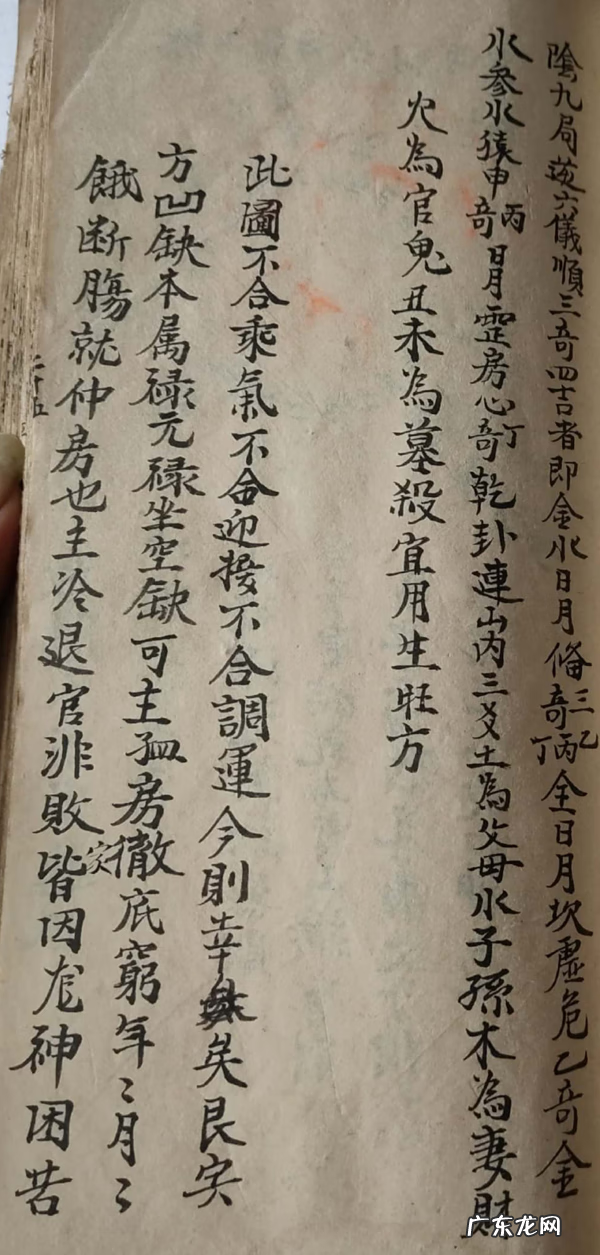 陰九局逆六儀順三奇四吉者即金水日月俻三奇乙丙丁全日月坎虛危乙奇金
水參水猿申丙奇日月霊房心丁奇乾卦連山内三爻土為父母水子孫木為妻財
火為官鬼丑未為墓殺宜用生旺方
此圖不合乘氣不合迎接不合調運今則幸矣艮寅
方凹缺本属禄元禄坐空缺可主孤房徹底窮年〻月〻
餓断腸就仲房也主冷退官非敗皆因龙神困苦
广东龙网